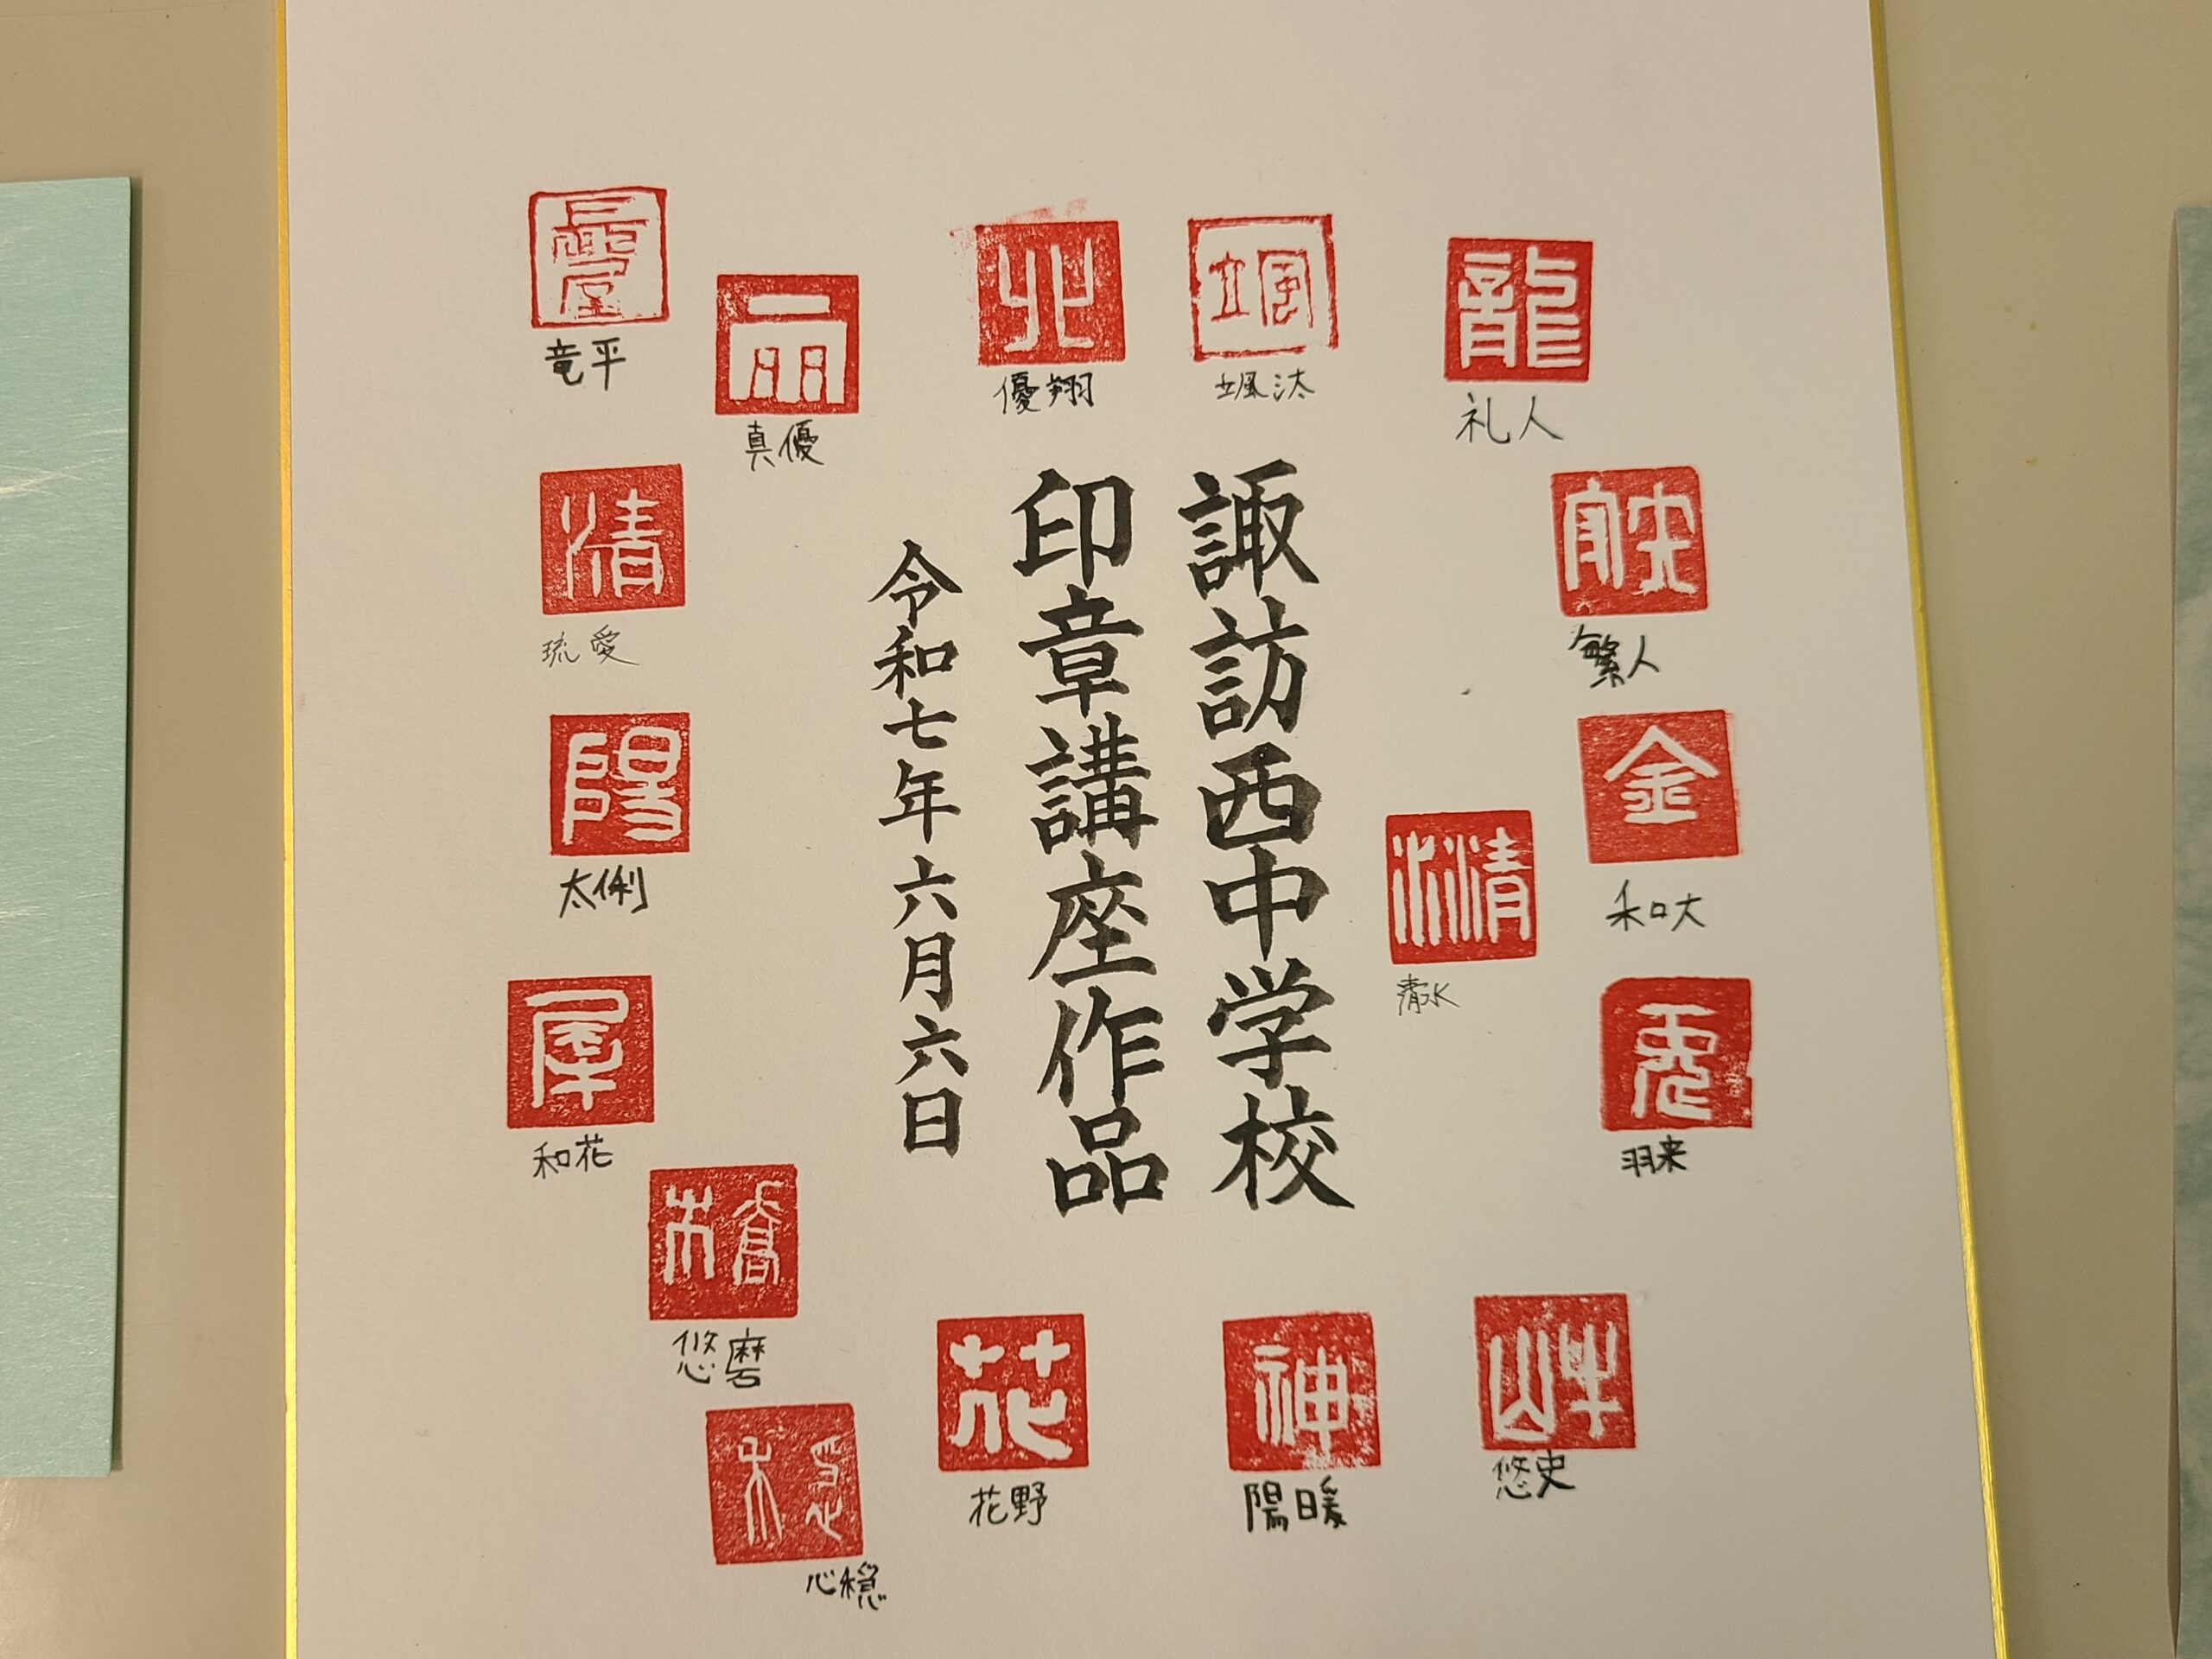 諏訪西中学校
印章講座作品
令和七年六月六日
龍
礼人
颯
颯汰
北
優翔
真優
竜平
繁人
金
和大
清水
清水
羽来
清
琉愛
陽
太俐
和花
悠磨
穏
心穏
花
花野
神
陽暖
悠史